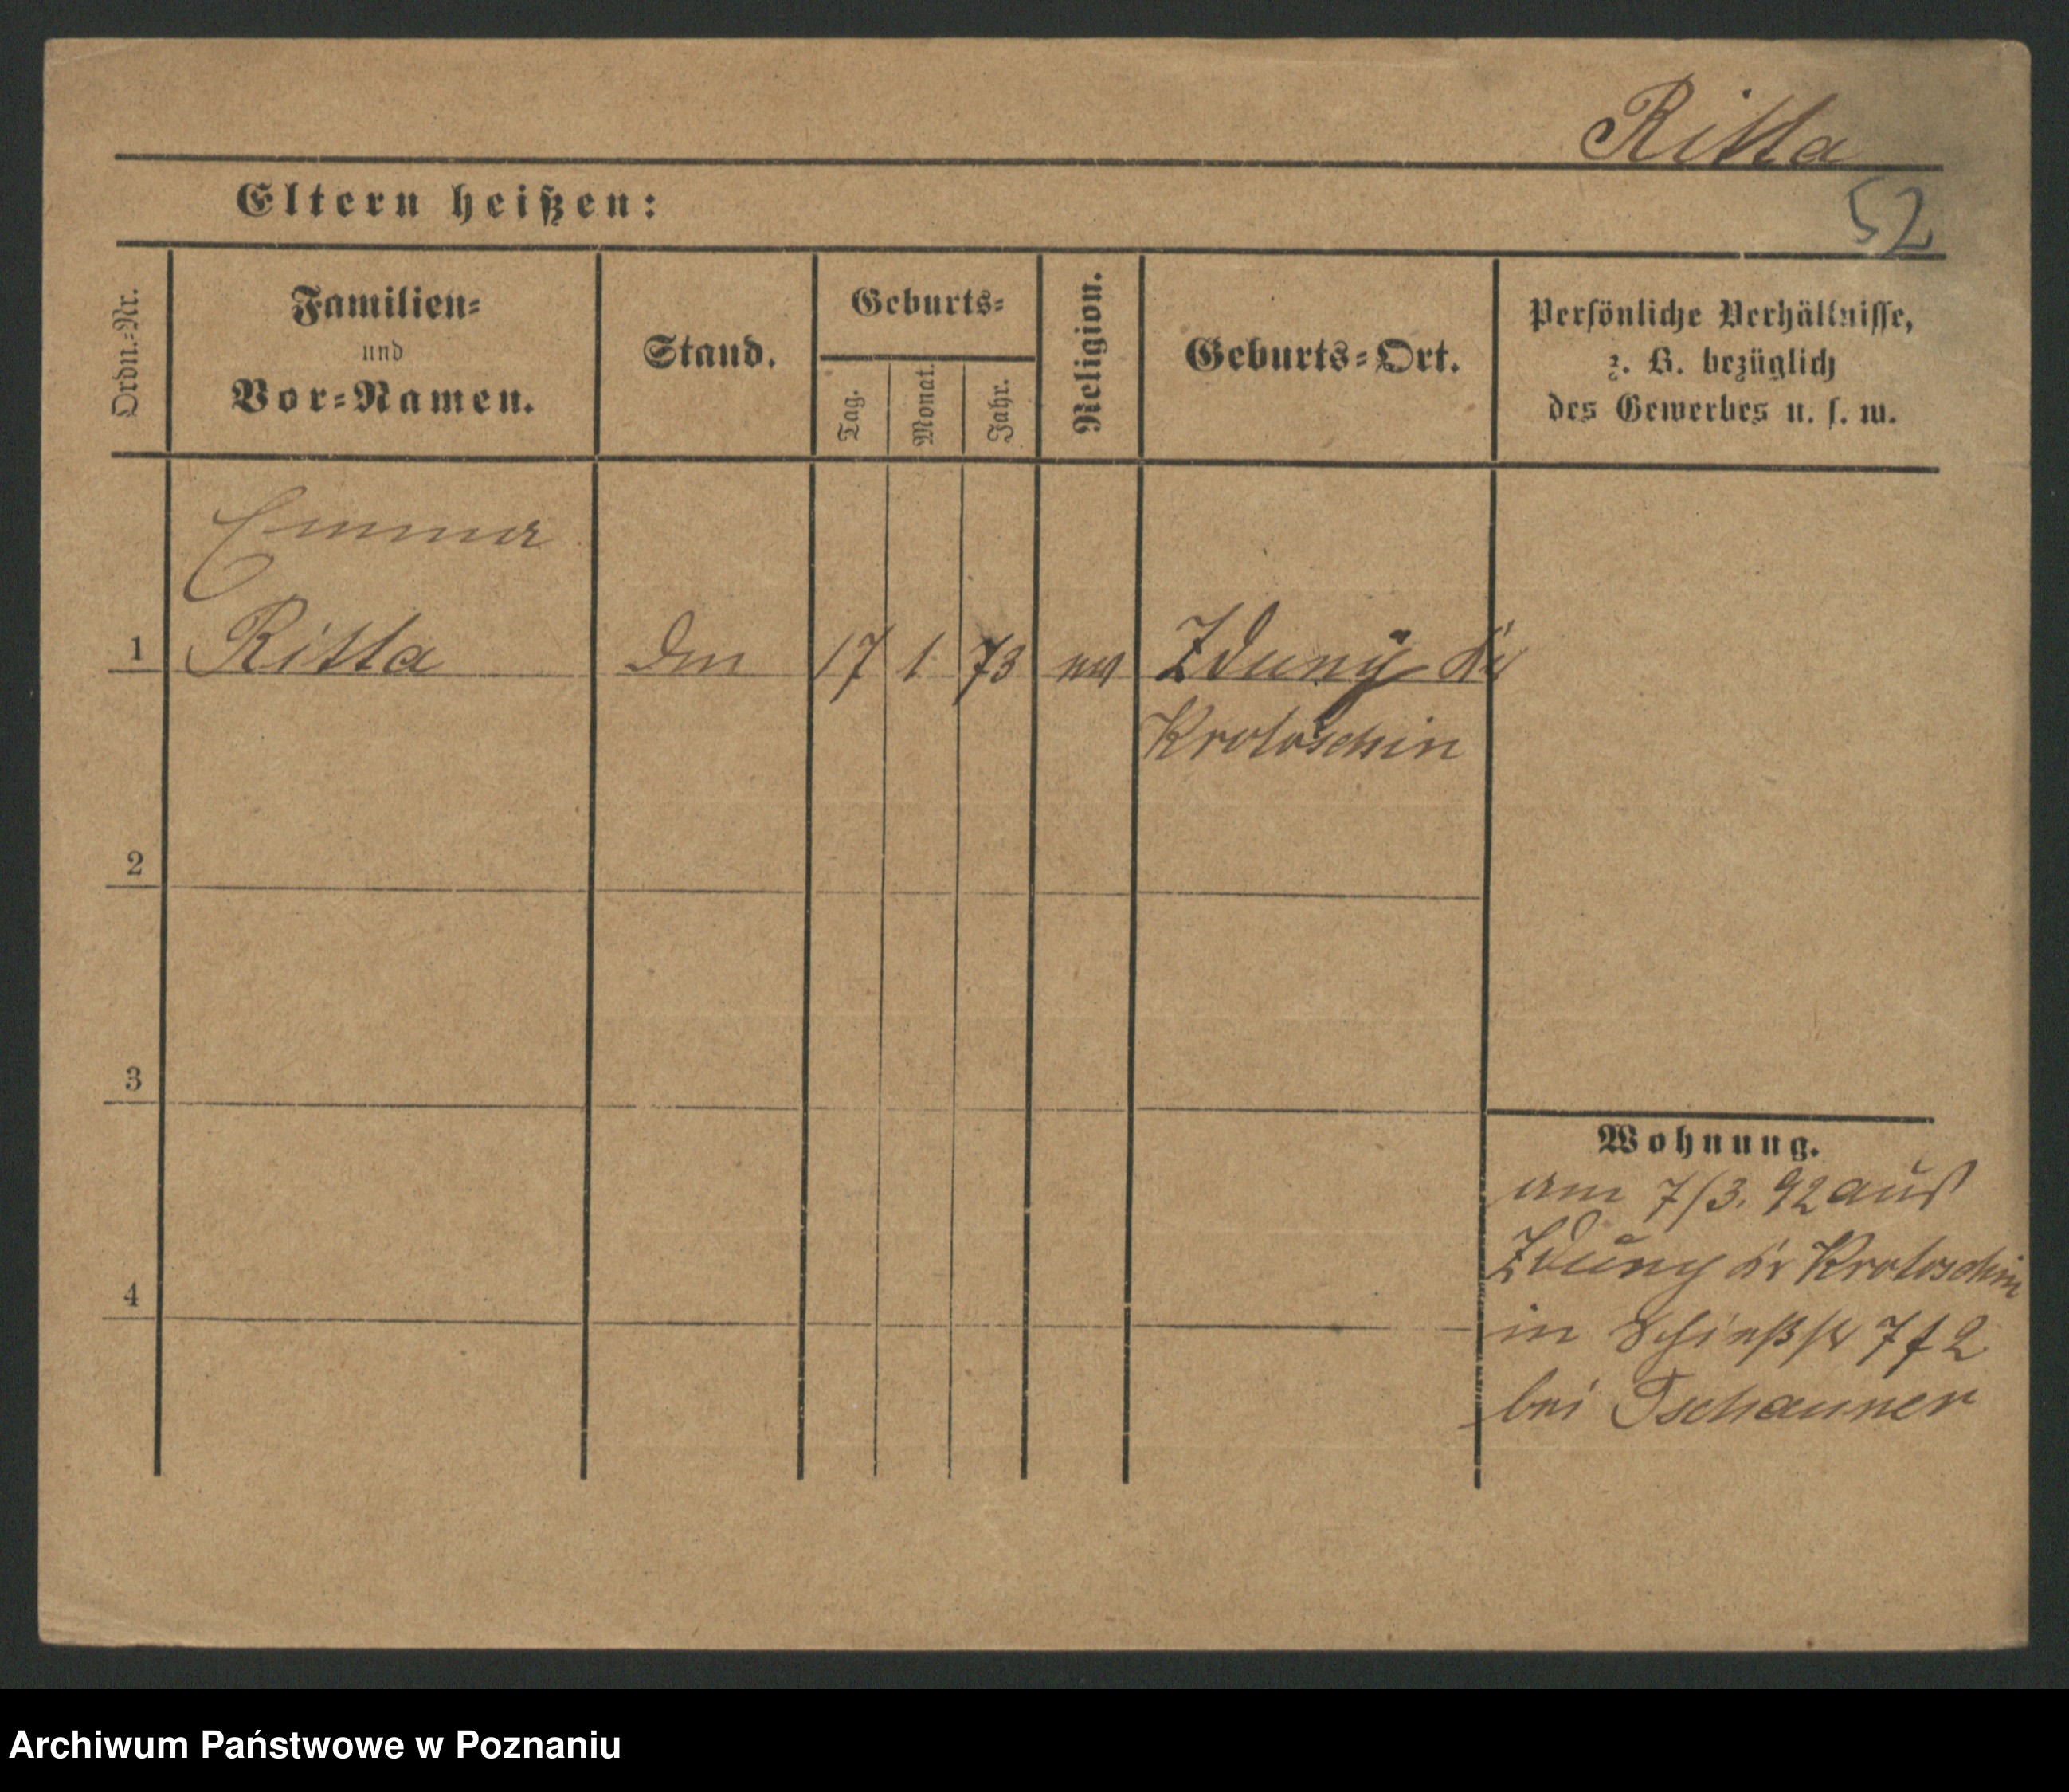 Ritta
52
Eltern heißen:
Ordn.-Nr.
Familien-
und
Vor-Namen.
Stand.
Geburts-
Tag.
Monat.
Jahr.
Religion.
Geburts-Ort.
Persönliche Verhältnisse,
z. B. bezüglich
des Gewerbes u. s. w.
Emma
1 Ritta 17 1 73 ev Zduny Kr
Krotoschin
2
3
4
Wohnung.
am 7/3. 92 aus
Zduny Kr Krotoschin
in Schießstr 7 f 2
bei Tschauner
Archiwum Państwowe w Poznaniu